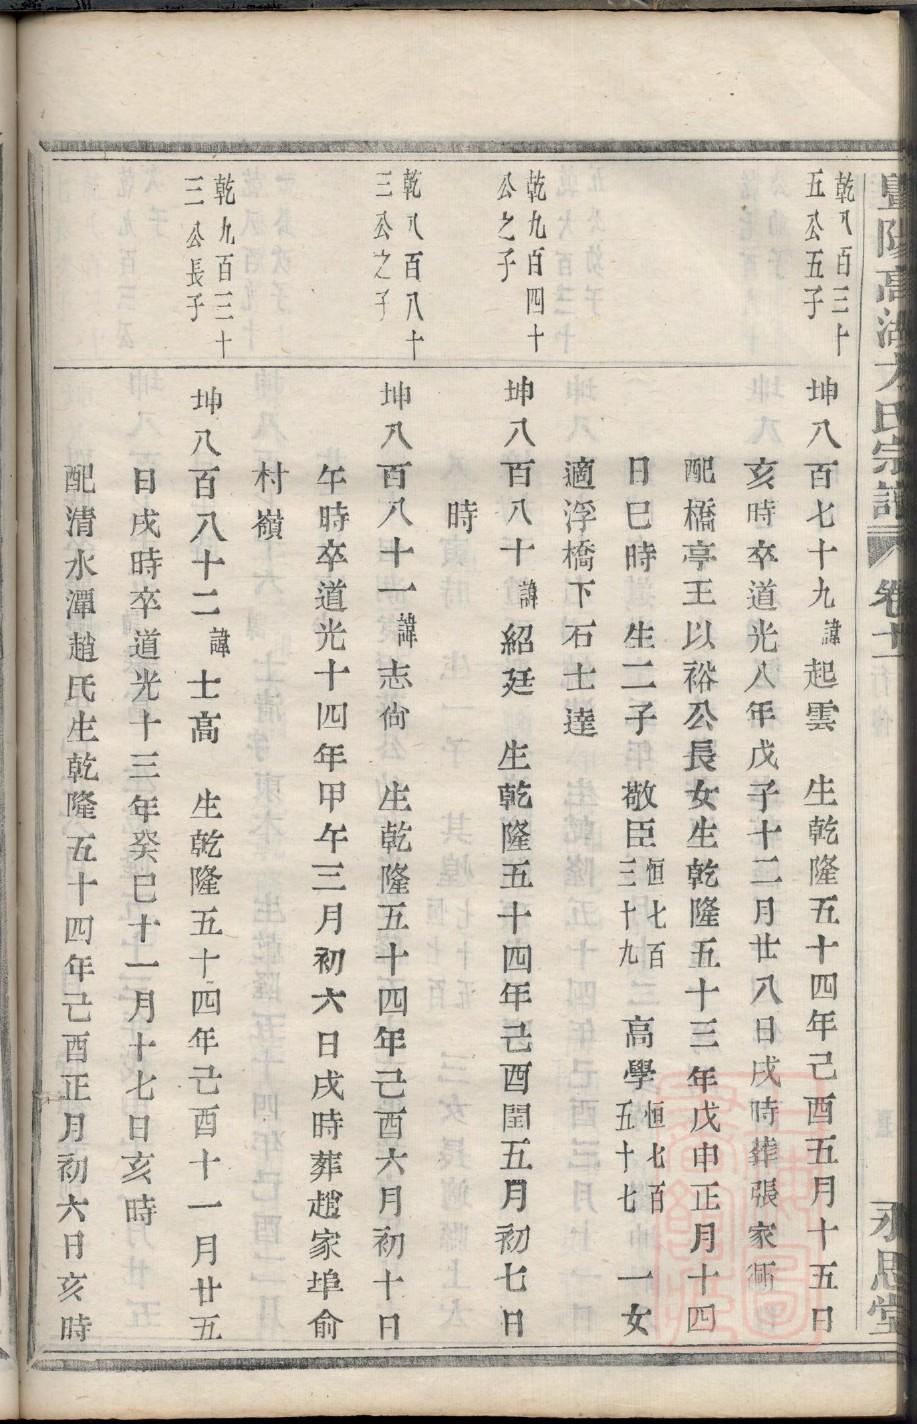 暨陽高湖方氏宗譜 卷十 永思堂
乾八百三十
五公五子
坤八百七十九諱起雲 生乾隆五十四年己酉五月十五日
亥時卒道光八年戊子十二月廿八日戌時葬張家
配橋亭王以裕公長女生乾隆五十三年戊申正月十四
日巳時 生二子 敬臣恒七百三十九 高學恒七百五十七 一女
適浮橋下石士達
乾九百四十
公之子
坤八百八十諱紹廷 生乾隆五十四年己酉閏五月初七日
時
乾八百八十
三公之子
坤八百八十一諱志尙 生乾隆五十四年己酉六月初十日
午時卒道光十四年甲午三月初六日戌時葬趙家埠俞
村嶺
乾九百三十
三公長子
坤八百八十二諱士高 生乾隆五十四年己酉十一月廿五
日戌時卒道光十三年癸巳十一月十七日亥時
配清水潭趙氏生乾隆五十四年己酉正月初六日亥時